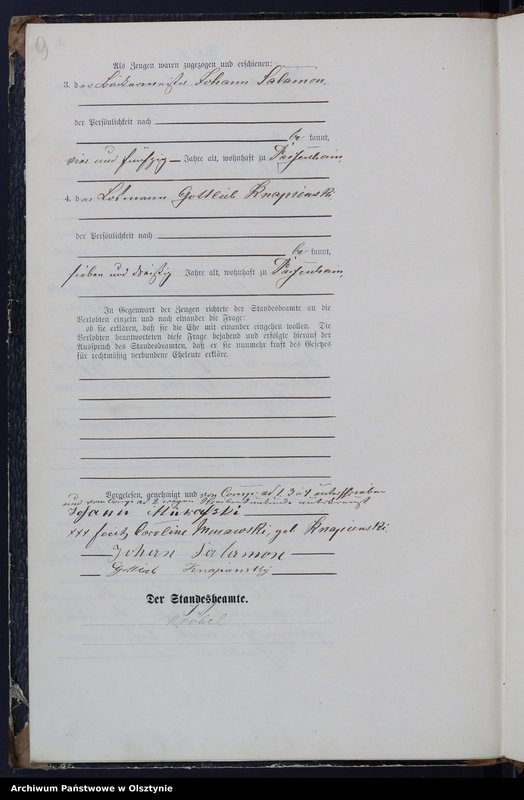 9
Als Zeugen waren zugezogen und erschienen:
3. der Bäckermeister Johann Salamon,
der Persönlichkeit nach
be kannt,
vier und fünfzig Jahre alt, wohnhaft zu
4. der Gottlieb Knapienski
der Persönlichkeit nach
be kannt,
sieben und dreißig Jahre alt, wohnhaft zu
In Gegenwart der Zeugen richtete der Standesbeamte an die
Verlobten einzeln und nach einander die Frage:
ob sie erklären, daß sie die Ehe mit einander eingehen wollen. Die
Verlobten beantworteten diese Frage bejahend und erfolgte hierauf der
Ausspruch des Standesbeamten, daß er sie nunmehr kraft des Gesetzes
für rechtmäßig verbundene Eheleute erkläre.
Vorgelesen, genehmigt und von Comp: ad 1 3 u 4 unterschrieben
und von Comp ad 2 wegen unterkreuzt
xxx Caroline Murawski, geb Knapienski
Johan Salamon
Gottlieb Knapiensky
Der Standesbeamte.
Archiwum Państwowe w Olsztynie